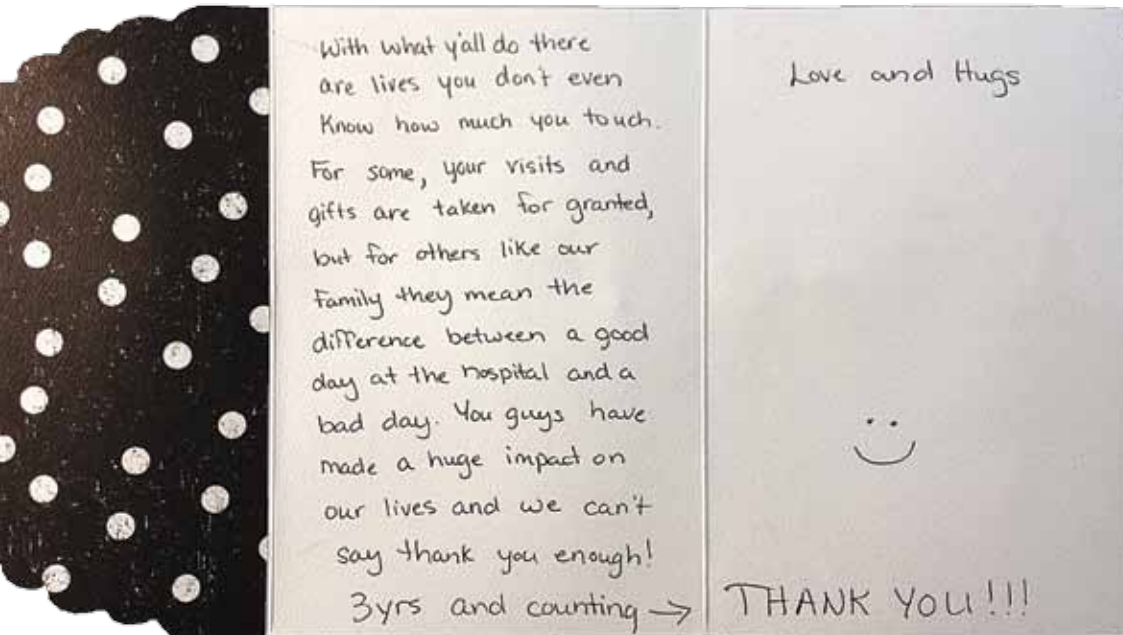 With what y'all do there
are lives you don't even
Know how much you touch.
For some, your visits and
gifts are taken for granted,
but for others like our
family they mean the
difference between a good
day at the hospital and a
bad day. You guys have
made a huge impact on
our lives and we can't
say thank you enough!
3yrs and counting →
Love and Hugs
THANK YOU!!!